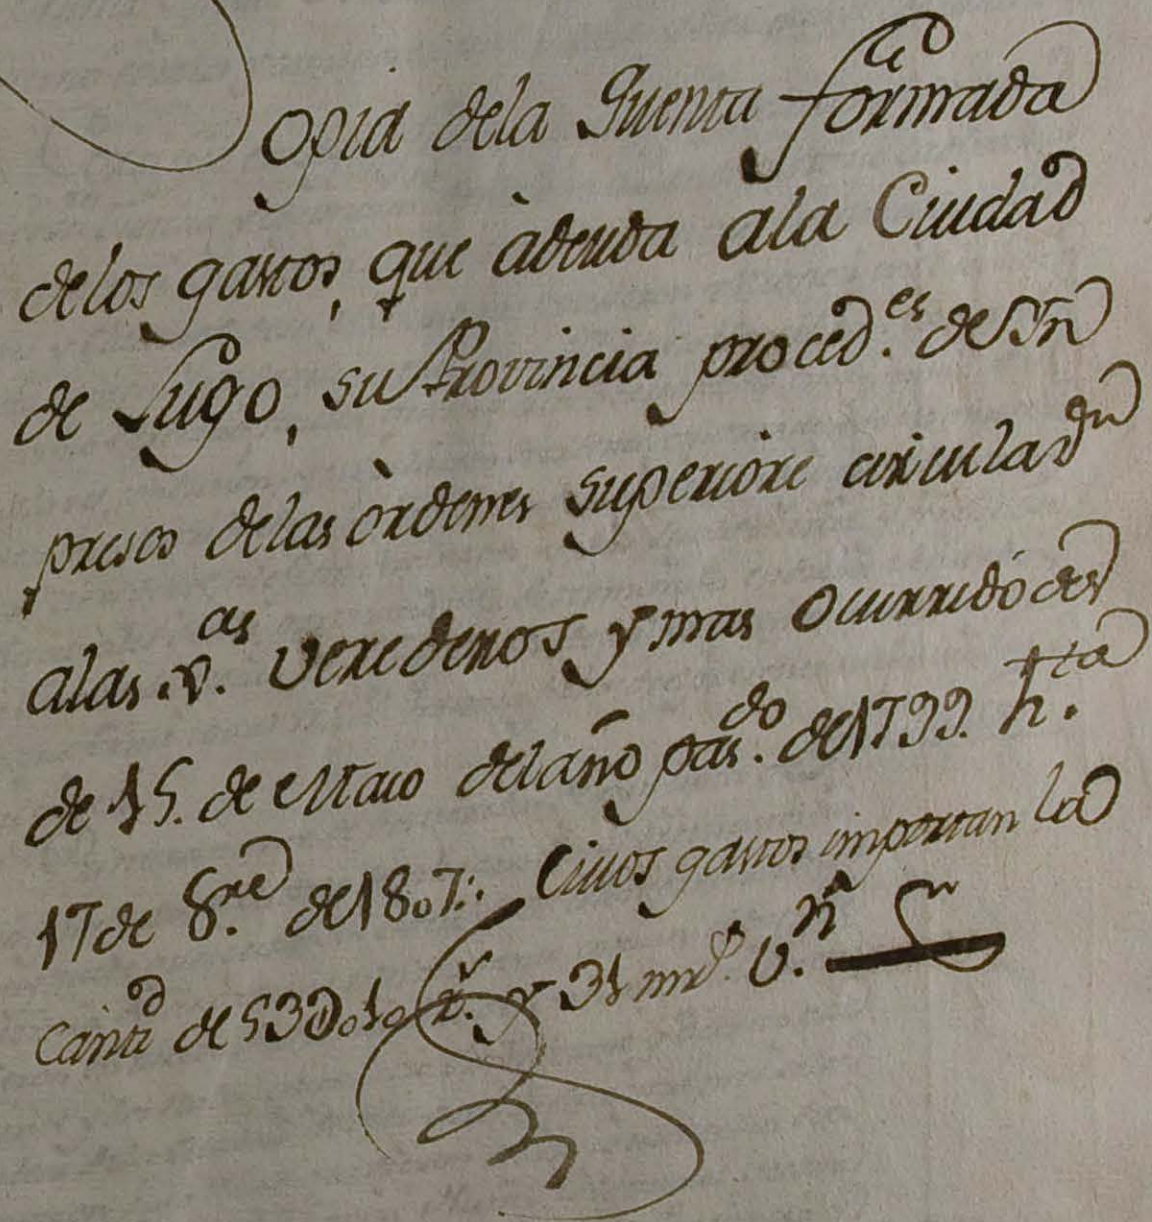 Copia dela Quenta formada
delos gastos, que àdeuda ala Ciudad
de Lugo, su Provincia proced.es de Ym
presos delas òrdenes superiore circuladas
alas .v.as verederos y mas ocurrido des
de 15. de Maio del año pas.do de 1799. h.ta
17 de 8.re de 1807: Cuios gastos importan la
Cantd de r.s y 31 mrs. v.n